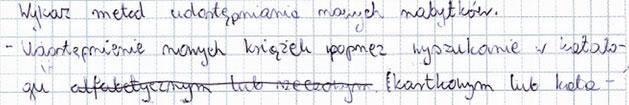 Wykaz metod udostępniania nowych nabytków.
- Udostępnienie nowych książek poprzez wyszukanie w katalo-
gu alfabetycznym lub rzeczowym (kartkowym lub kata-